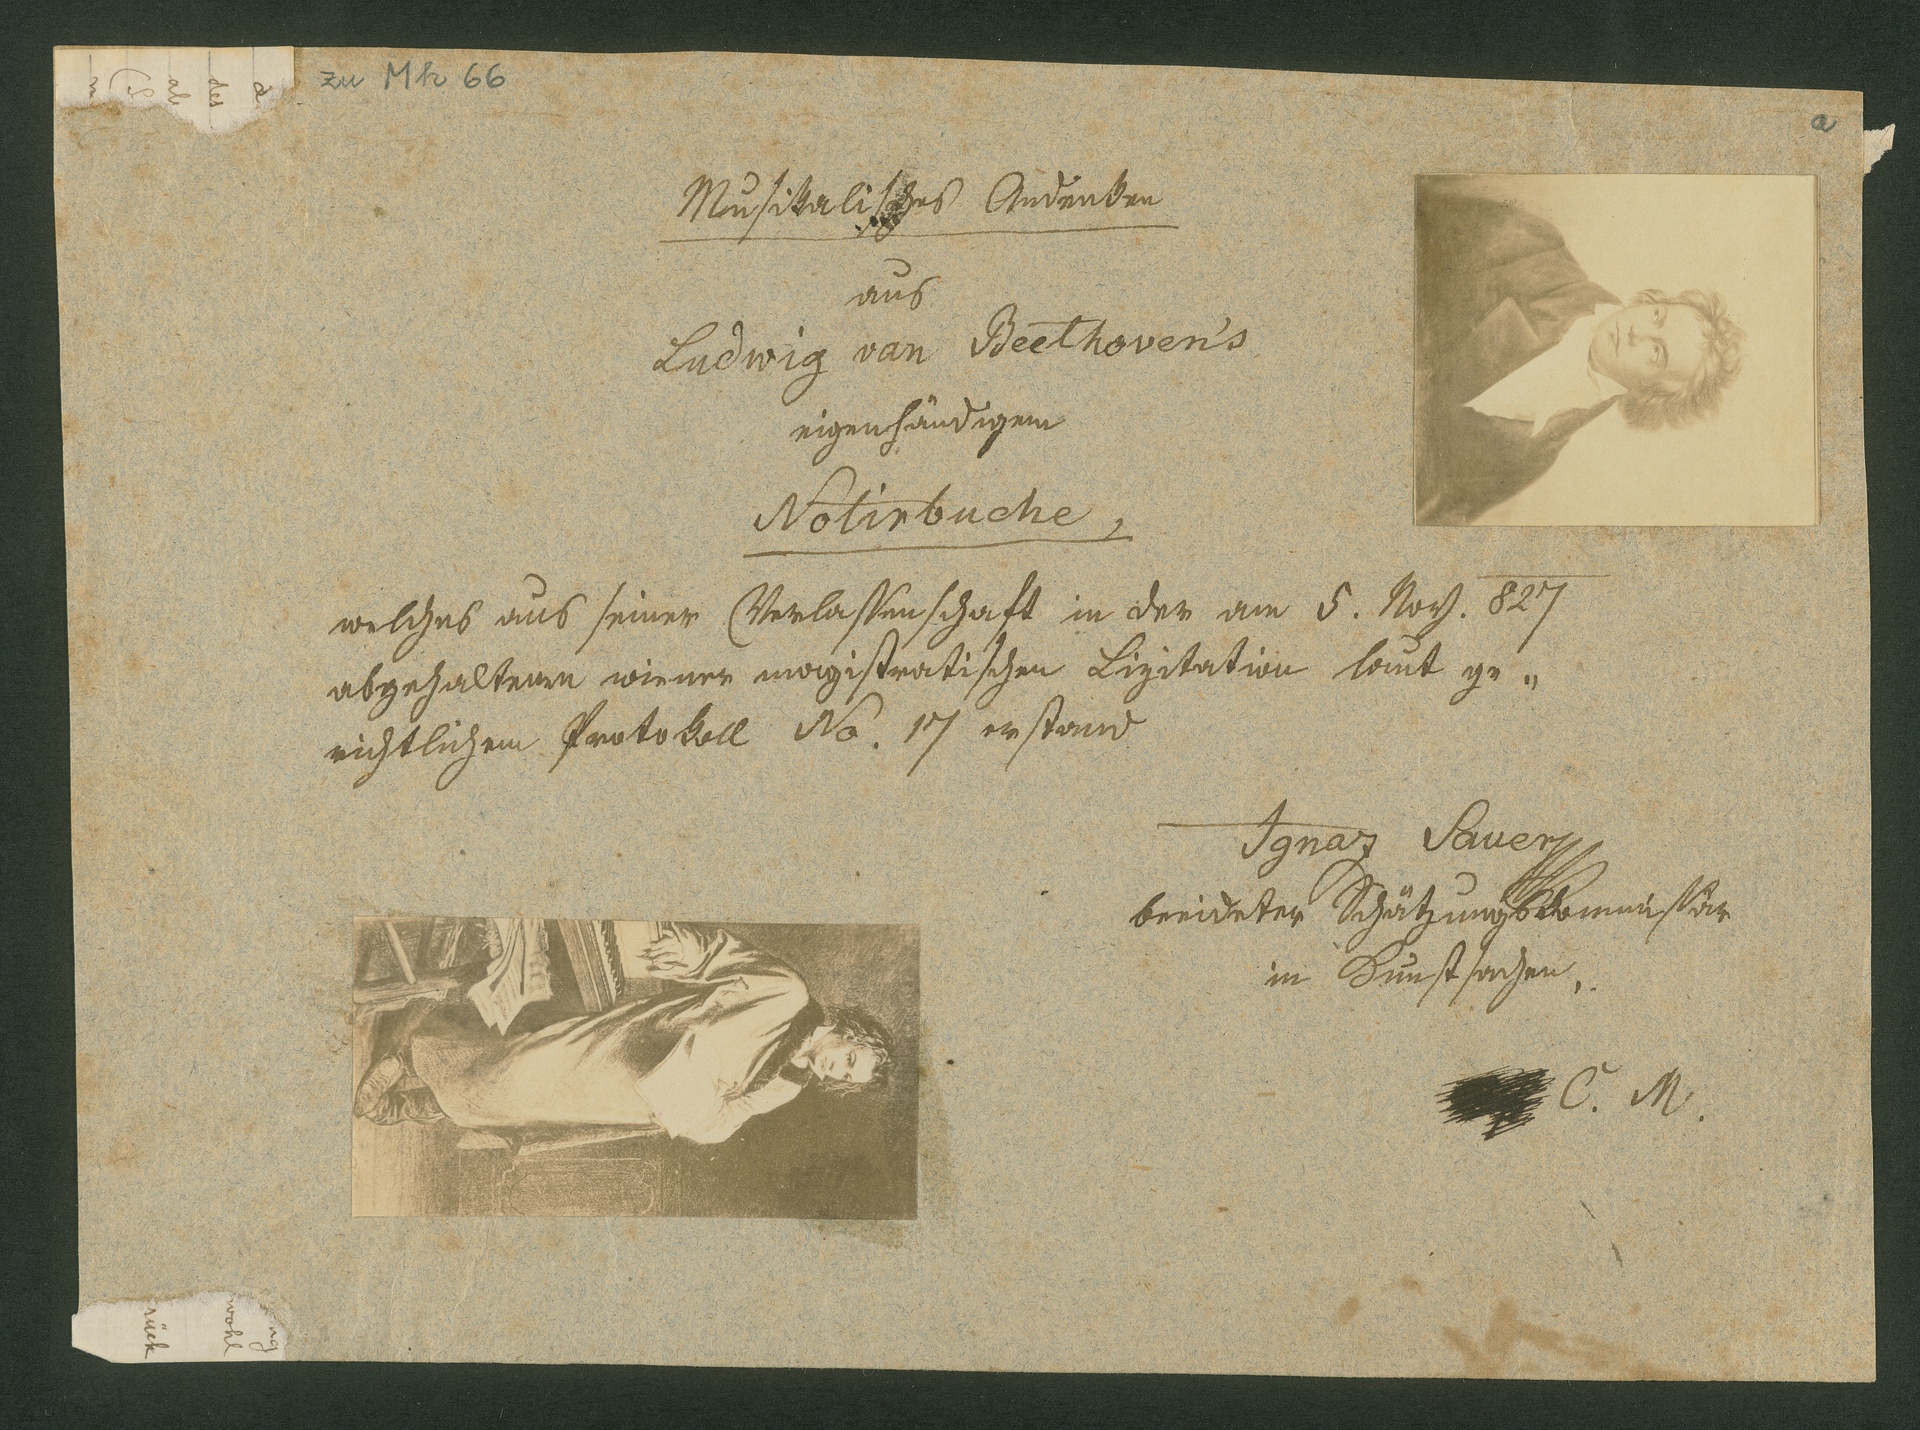 zu Mh 66
a
Musikalisches Andenken
aus
Ludwig van Beethoven's
eigenhändigem
Notirbuche,
welches aus seiner Verlassenschaft in der am 5. Nov. 827
abgehaltenen wiener magistratischen Lizitation laut ge„
richtlichem Protokoll No. 17 erstand
Ignaz Sauer
beeideter Schätzungskommissär
in Kunstsachen.
C. M.
des
ng
wohl
rück